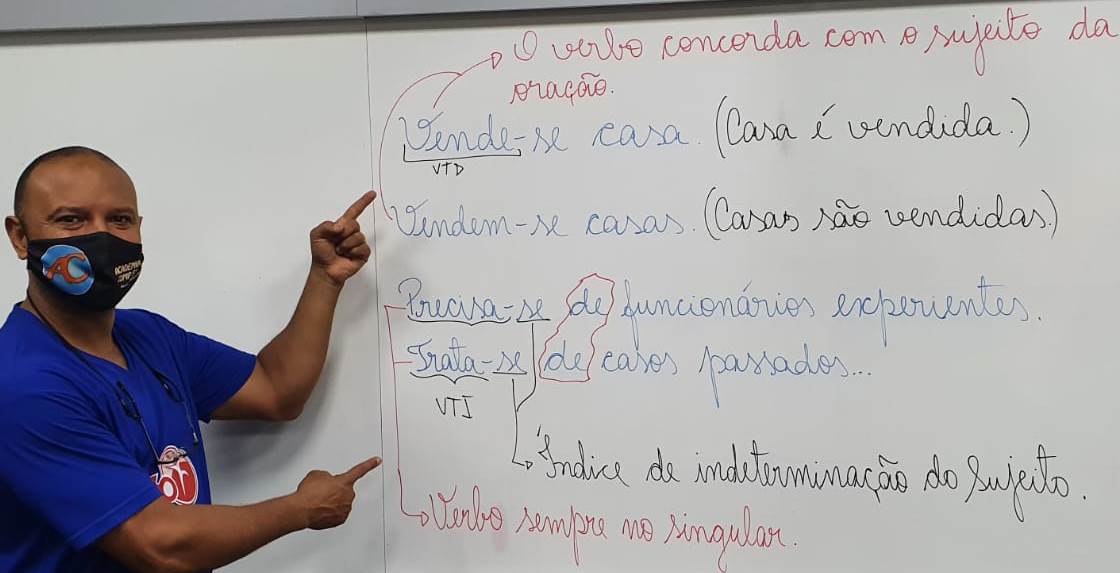 O verbo concorda com o sujeito da
oração.
Vende-se casa. (Casa é vendida.)
VTD
Vendem-se casas. (Casas são vendidas.)
Precisa-se de funcionários experientes.
Trata-se de casos passados...
VTI
Índice de indeterminação do Sujeito.
Verbo sempre no singular.
AC